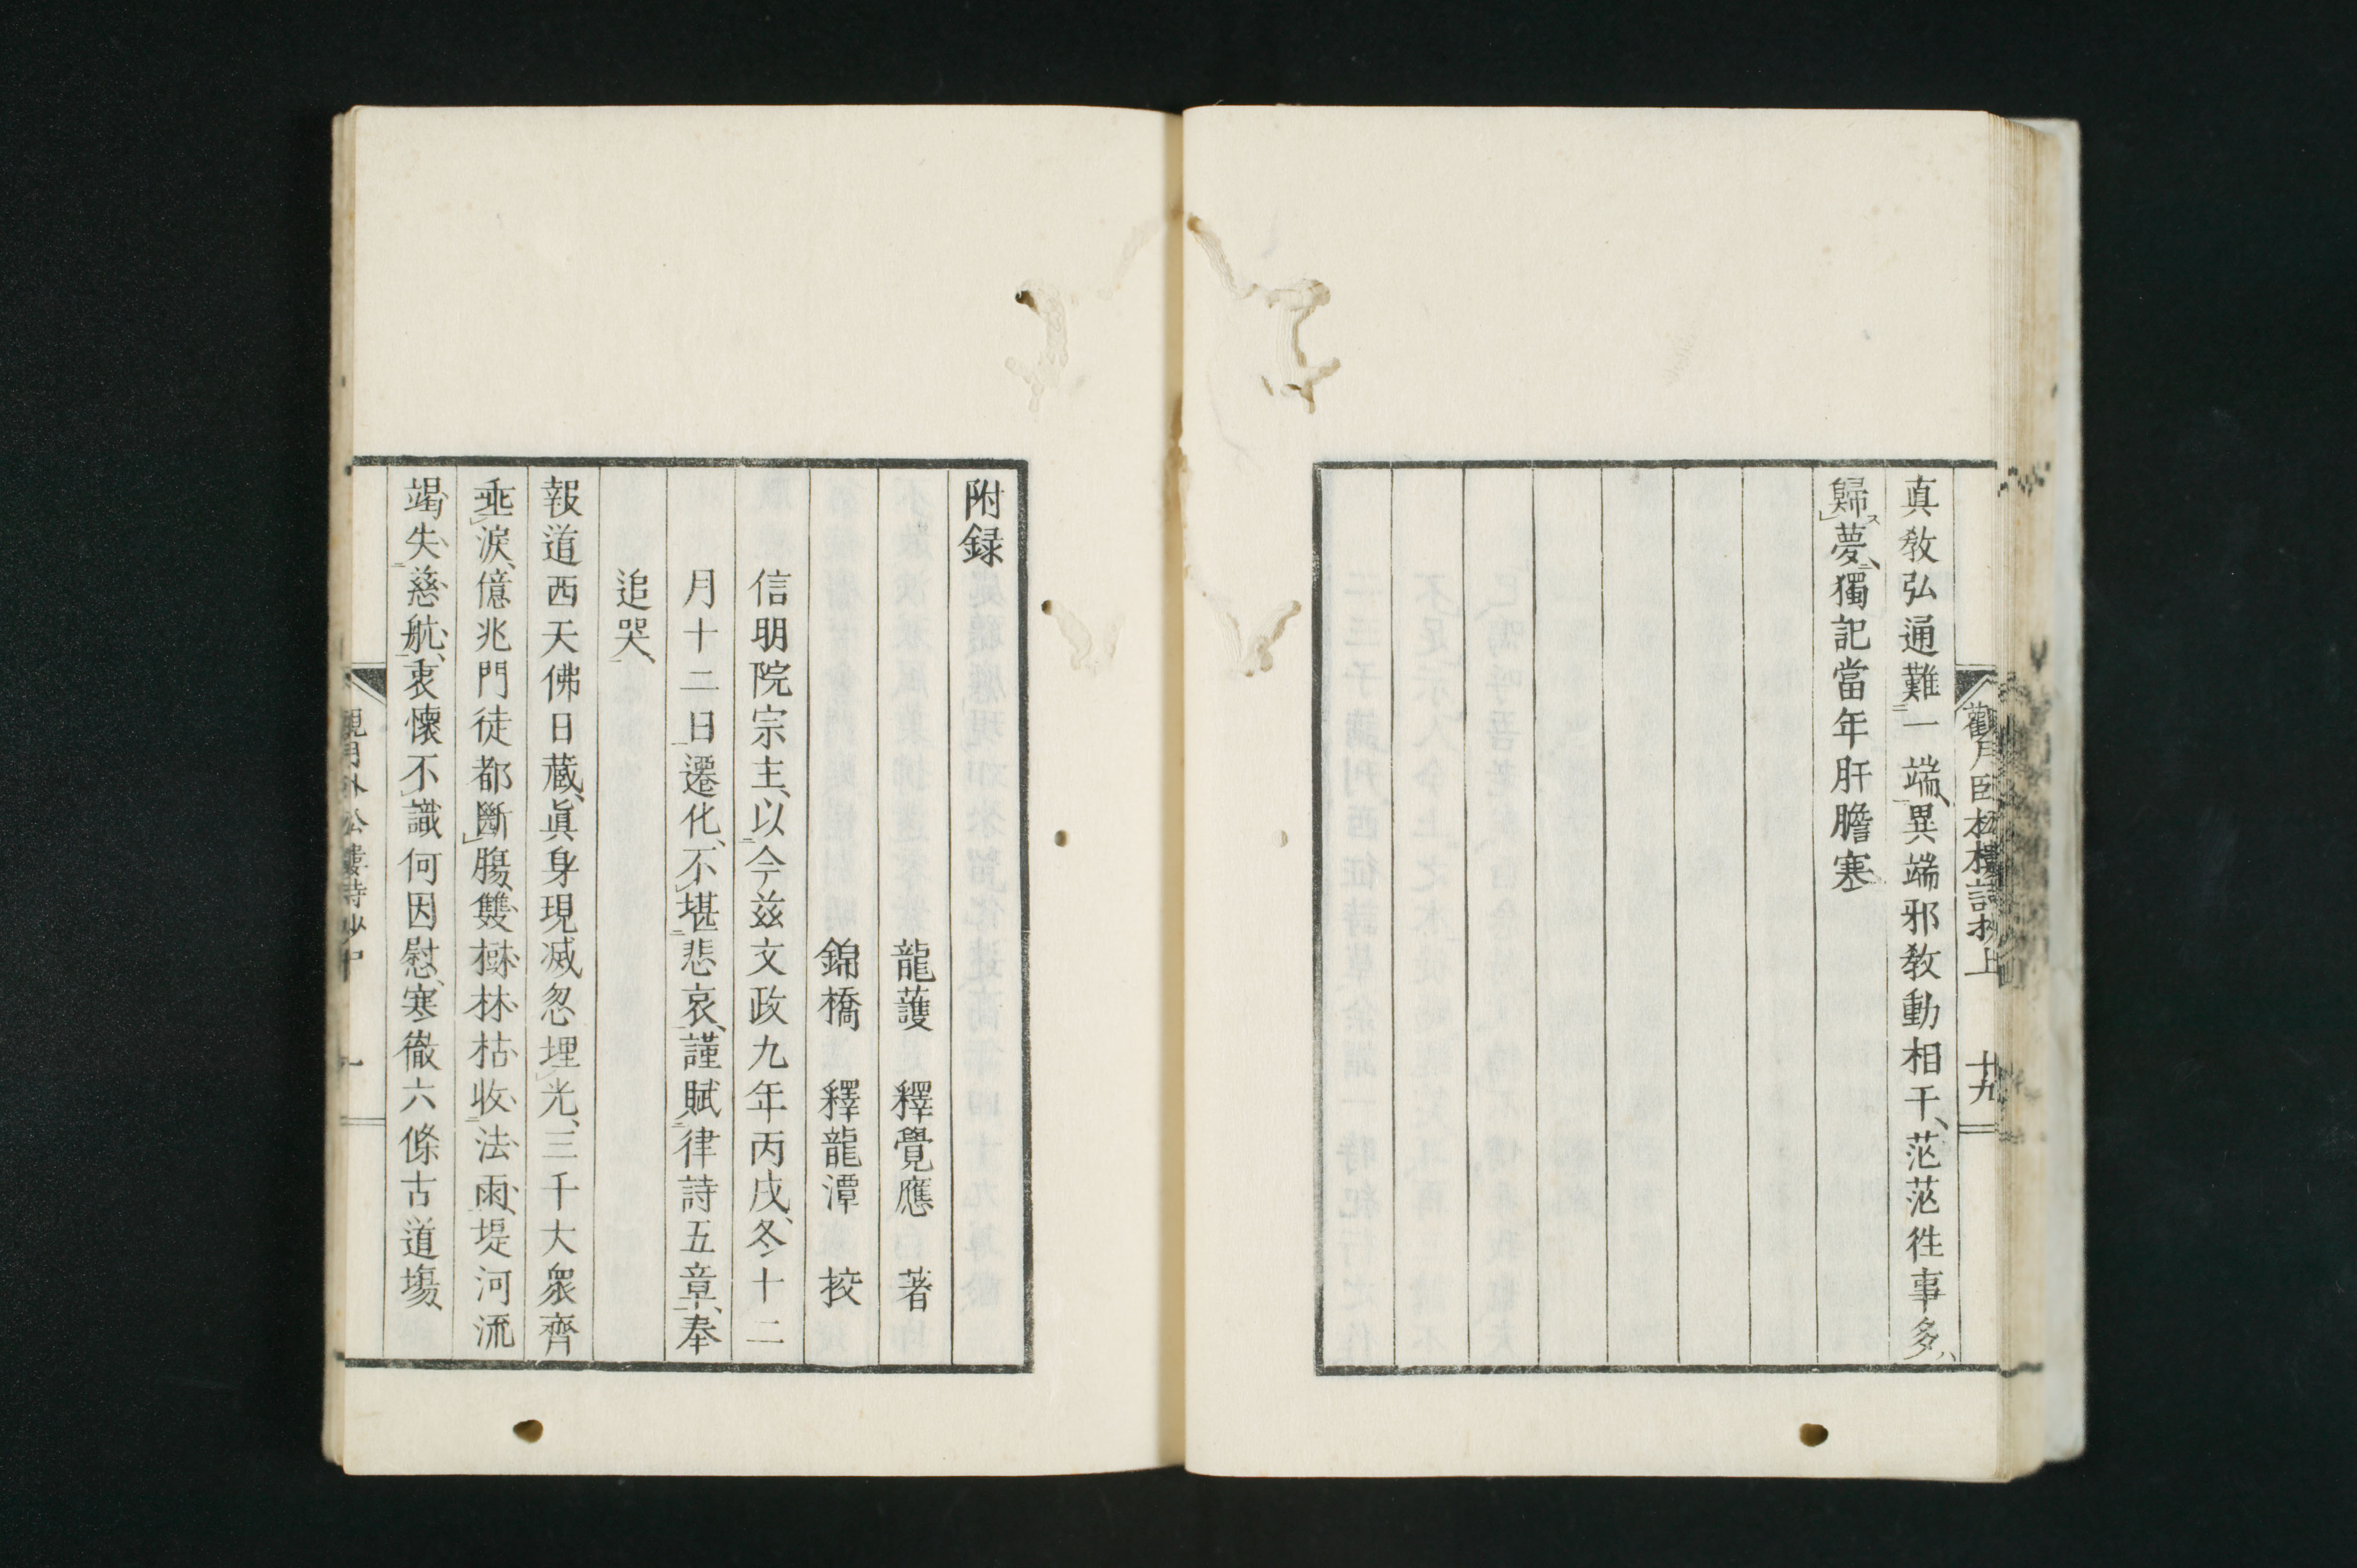 真教弘通難一端異端邪教動相干茫茫徃事多
歸夢獨記當年肝膽寒
十九
附録
龍護 釋覺應 著
錦橋 釋龍潭 挍
信明院宗主以今玆文政九年丙戌冬十二
月十二日遷化不堪悲哀謹賦律詩五章奉
追哭
報道西天佛日藏眞身現滅忽埋光三千大衆齊
乖淚億兆門徒都斷腸雙樹林枯收法雨堤河流
竭失慈航衷懷不識何因慰寒徹六條古道塲